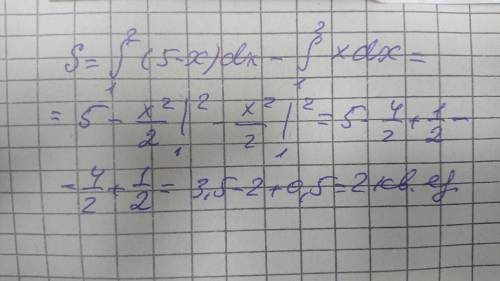 S = ∫₁² (5-x)dx - ∫₁² xdx =
= 5 - x²/2 |₁² - x²/2 |₁² = 5 - 4/2 + 1/2 -
- 4/2 + 1/2 = 3,5 - 2 + 0,5 = 2 кв. ед.